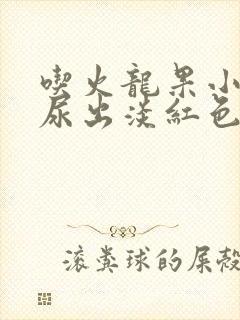 喫火龍果小
尿出淡紅色
滚糞球的屎殼